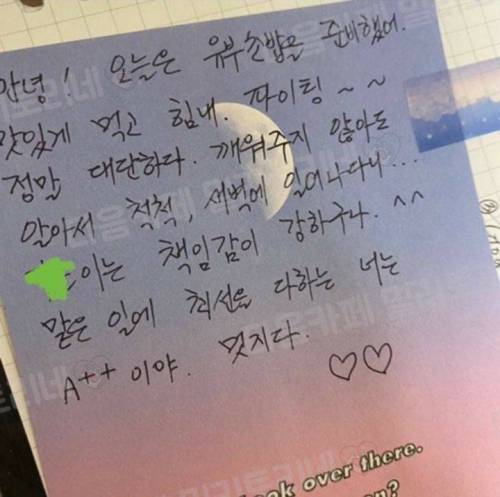 안녕! 오늘은 유부초밥을 준비했어.
맛있게 먹고 힘내. 파이팅~~
정말 대단하다. 깨워주지 않아도
알아서 척척, 새벽에 일어나다니...
이는 책임감이 강하구나. ^^
맡은 일에 최선을 다하는 너는
A++ 이야. 멋지다.
♡♡
ook over there.